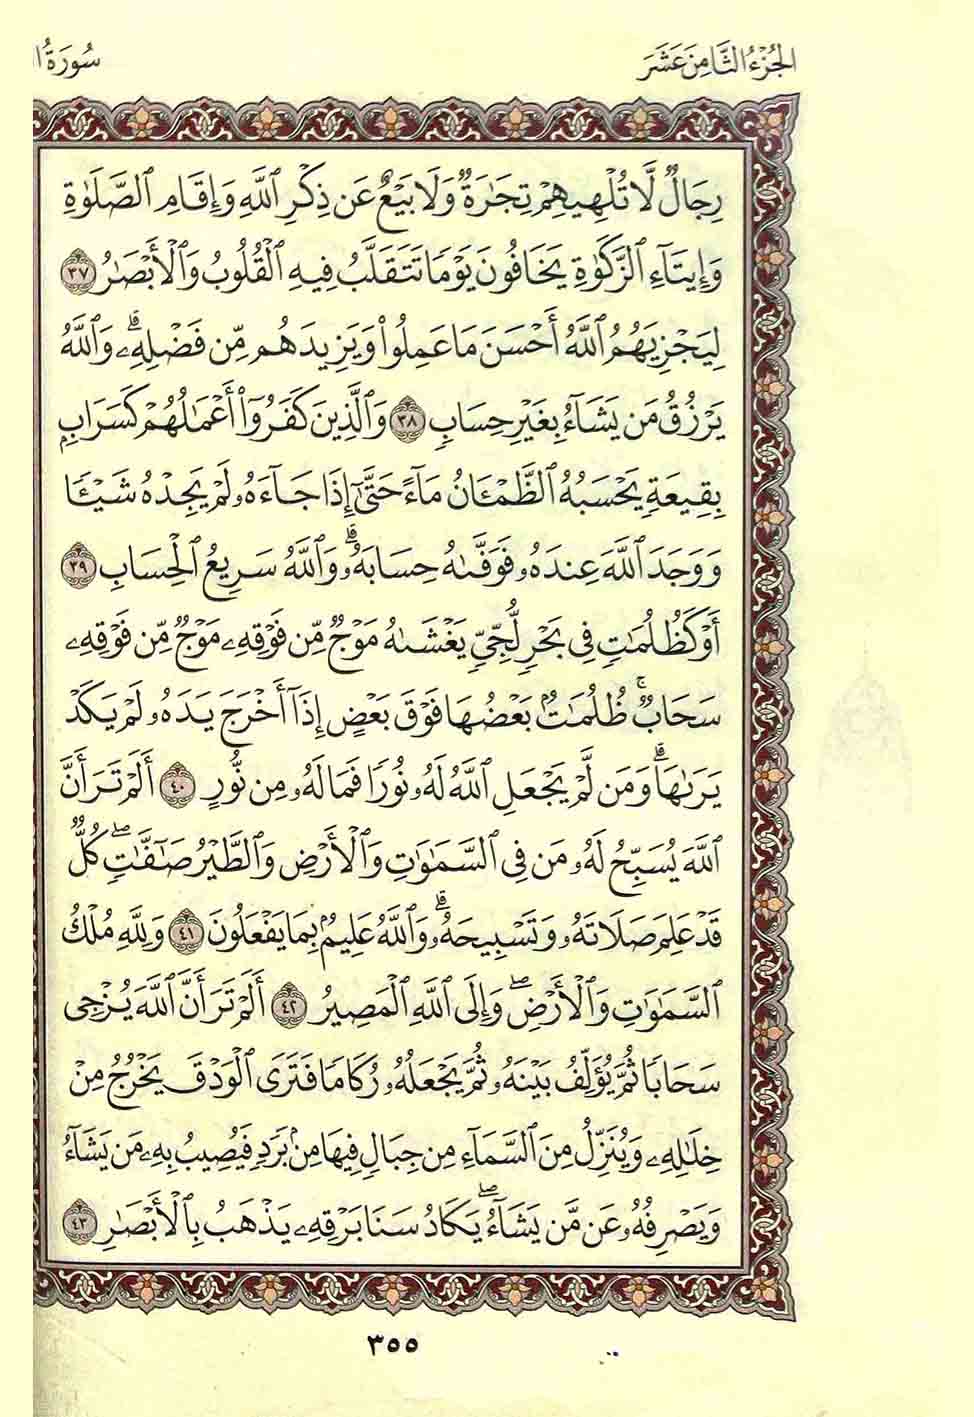 الجُزْءُ الثَّامِنَ عَشَرَ
سُورَةُ ا
رِجَالٌ لَّا تُلْهِيهِمْ تِجَٰرَةٌ وَلَا بَيْعٌ عَن ذِكْرِ ٱللَّهِ وَإِقَامِ ٱلصَّلَوٰةِ
وَإِيتَآءِ ٱلزَّكَوٰةِ يَخَافُونَ يَوْمًا تَتَقَلَّبُ فِيهِ ٱلْقُلُوبُ وَٱلْأَبْصَٰرُ ٣٧
لِيَجْزِيَهُمُ ٱللَّهُ أَحْسَنَ مَا عَمِلُوا۟ وَيَزِيدَهُم مِّن فَضْلِهِۦ ۗ وَٱللَّهُ
يَرْزُقُ مَن يَشَآءُ بِغَيْرِ حِسَابٍ ٣٨ وَٱلَّذِينَ كَفَرُوٓا۟ أَعْمَٰلُهُمْ كَسَرَابٍ
بِقِيعَةٍ يَحْسَبُهُ ٱلظَّمْـَٔانُ مَآءً حَتَّىٰٓ إِذَا جَآءَهُۥ لَمْ يَجِدْهُ شَيْـًٔا
وَوَجَدَ ٱللَّهَ عِندَهُۥ فَوَفَّىٰهُ حِسَابَهُۥ ۗ وَٱللَّهُ سَرِيعُ ٱلْحِسَابِ ٣٩
أَوْ كَظُلُمَٰتٍ فِى بَحْرٍ لُّجِّىٍّ يَغْشَىٰهُ مَوْجٌ مِّن فَوْقِهِۦ مَوْجٌ مِّن فَوْقِهِۦ
سَحَابٌ ۚ ظُلُمَٰتٌۢ بَعْضُهَا فَوْقَ بَعْضٍ إِذَآ أَخْرَجَ يَدَهُۥ لَمْ يَكَدْ
يَرَىٰهَا ۗ وَمَن لَّمْ يَجْعَلِ ٱللَّهُ لَهُۥ نُورًا فَمَا لَهُۥ مِن نُّورٍ ٤٠ أَلَمْ تَرَ أَنَّ
ٱللَّهَ يُسَبِّحُ لَهُۥ مَن فِى ٱلسَّمَٰوَٰتِ وَٱلْأَرْضِ وَٱلطَّيْرُ صَٰٓفَّٰتٍ ۖ كُلٌّ
قَدْ عَلِمَ صَلَاتَهُۥ وَتَسْبِيحَهُۥ ۗ وَٱللَّهُ عَلِيمٌۢ بِمَا يَفْعَلُونَ ٤١ وَلِلَّهِ مُلْكُ
ٱلسَّمَٰوَٰتِ وَٱلْأَرْضِ ۖ وَإِلَى ٱللَّهِ ٱلْمَصِيرُ ٤٢ أَلَمْ تَرَ أَنَّ ٱللَّهَ يُزْجِى
سَحَابًا ثُمَّ يُؤَلِّفُ بَيْنَهُۥ ثُمَّ يَجْعَلُهُۥ رُكَامًا فَتَرَى ٱلْوَدْقَ يَخْرُجُ مِنْ
خِلَٰلِهِۦ وَيُنَزِّلُ مِنَ ٱلسَّمَآءِ مِن جِبَالٍ فِيهَا مِنۢ بَرَدٍ فَيُصِيبُ بِهِۦ مَن يَشَآءُ
وَيَصْرِفُهُۥ عَن مَّن يَشَآءُ ۖ يَكَادُ سَنَا بَرْقِهِۦ يَذْهَبُ بِٱلْأَبْصَٰرِ ٤٣
٣٥٥